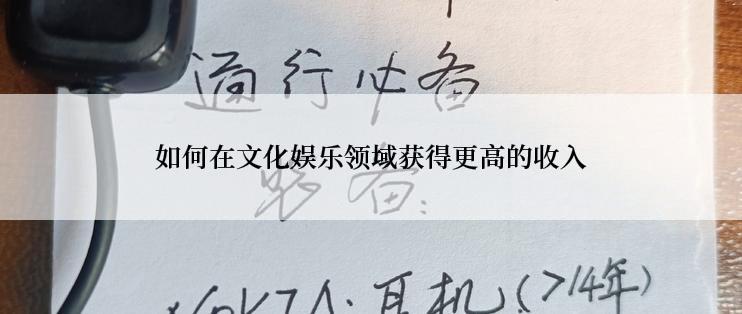 通行必备
如何在文化娱乐领域获得更高的收入
备:
耳机(>14年)